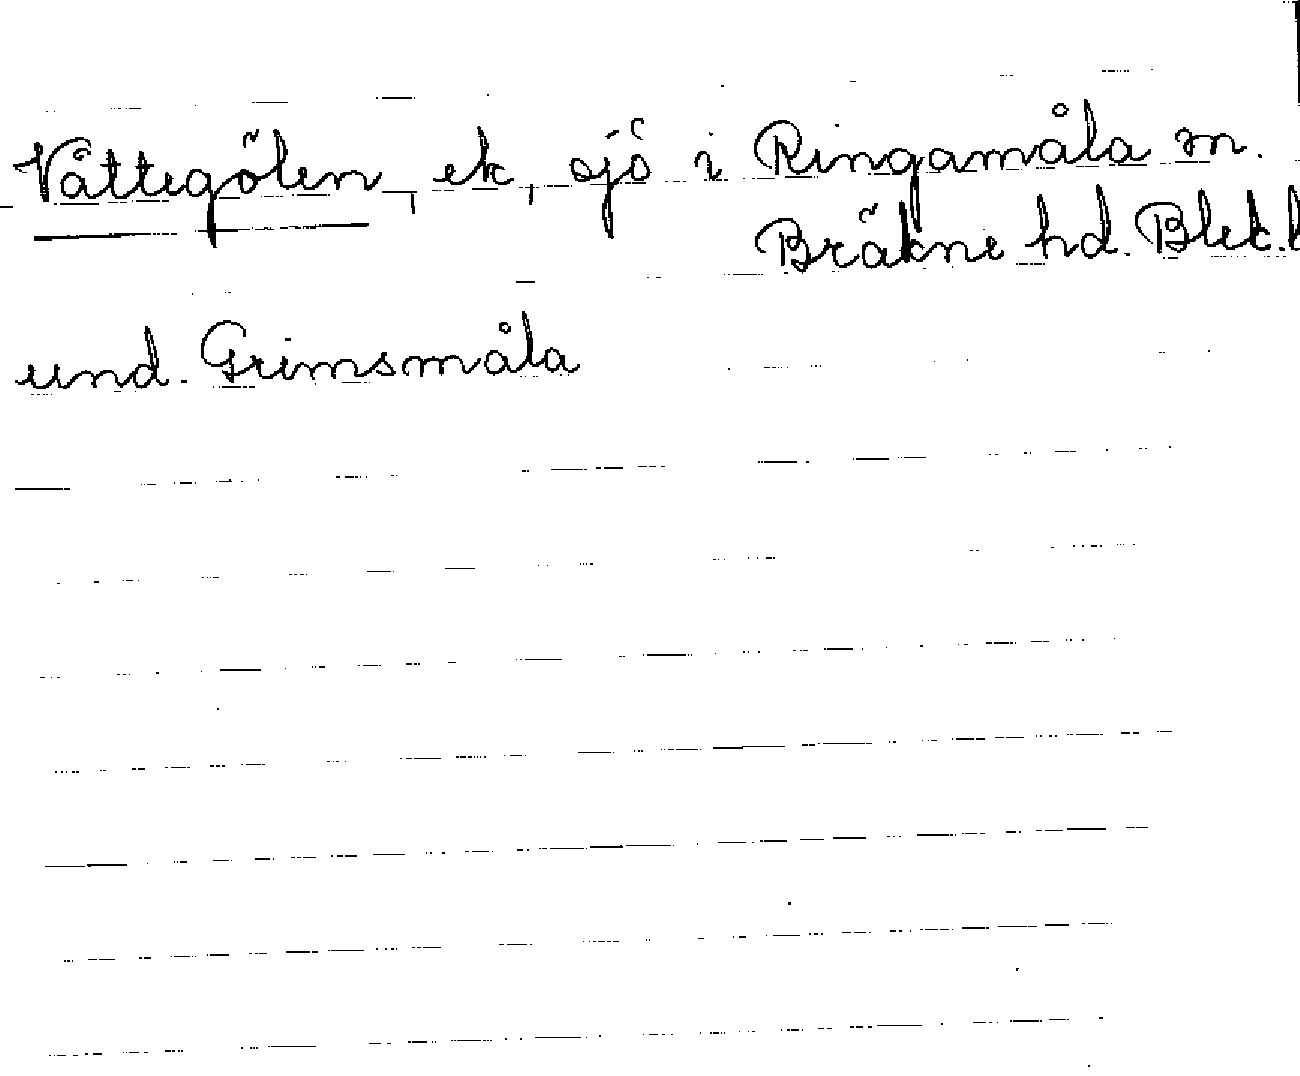 Våttegölen, ek, sjö i Ringamåla sn.
Bräkne hd. Blek.l
und. Grimsmåla